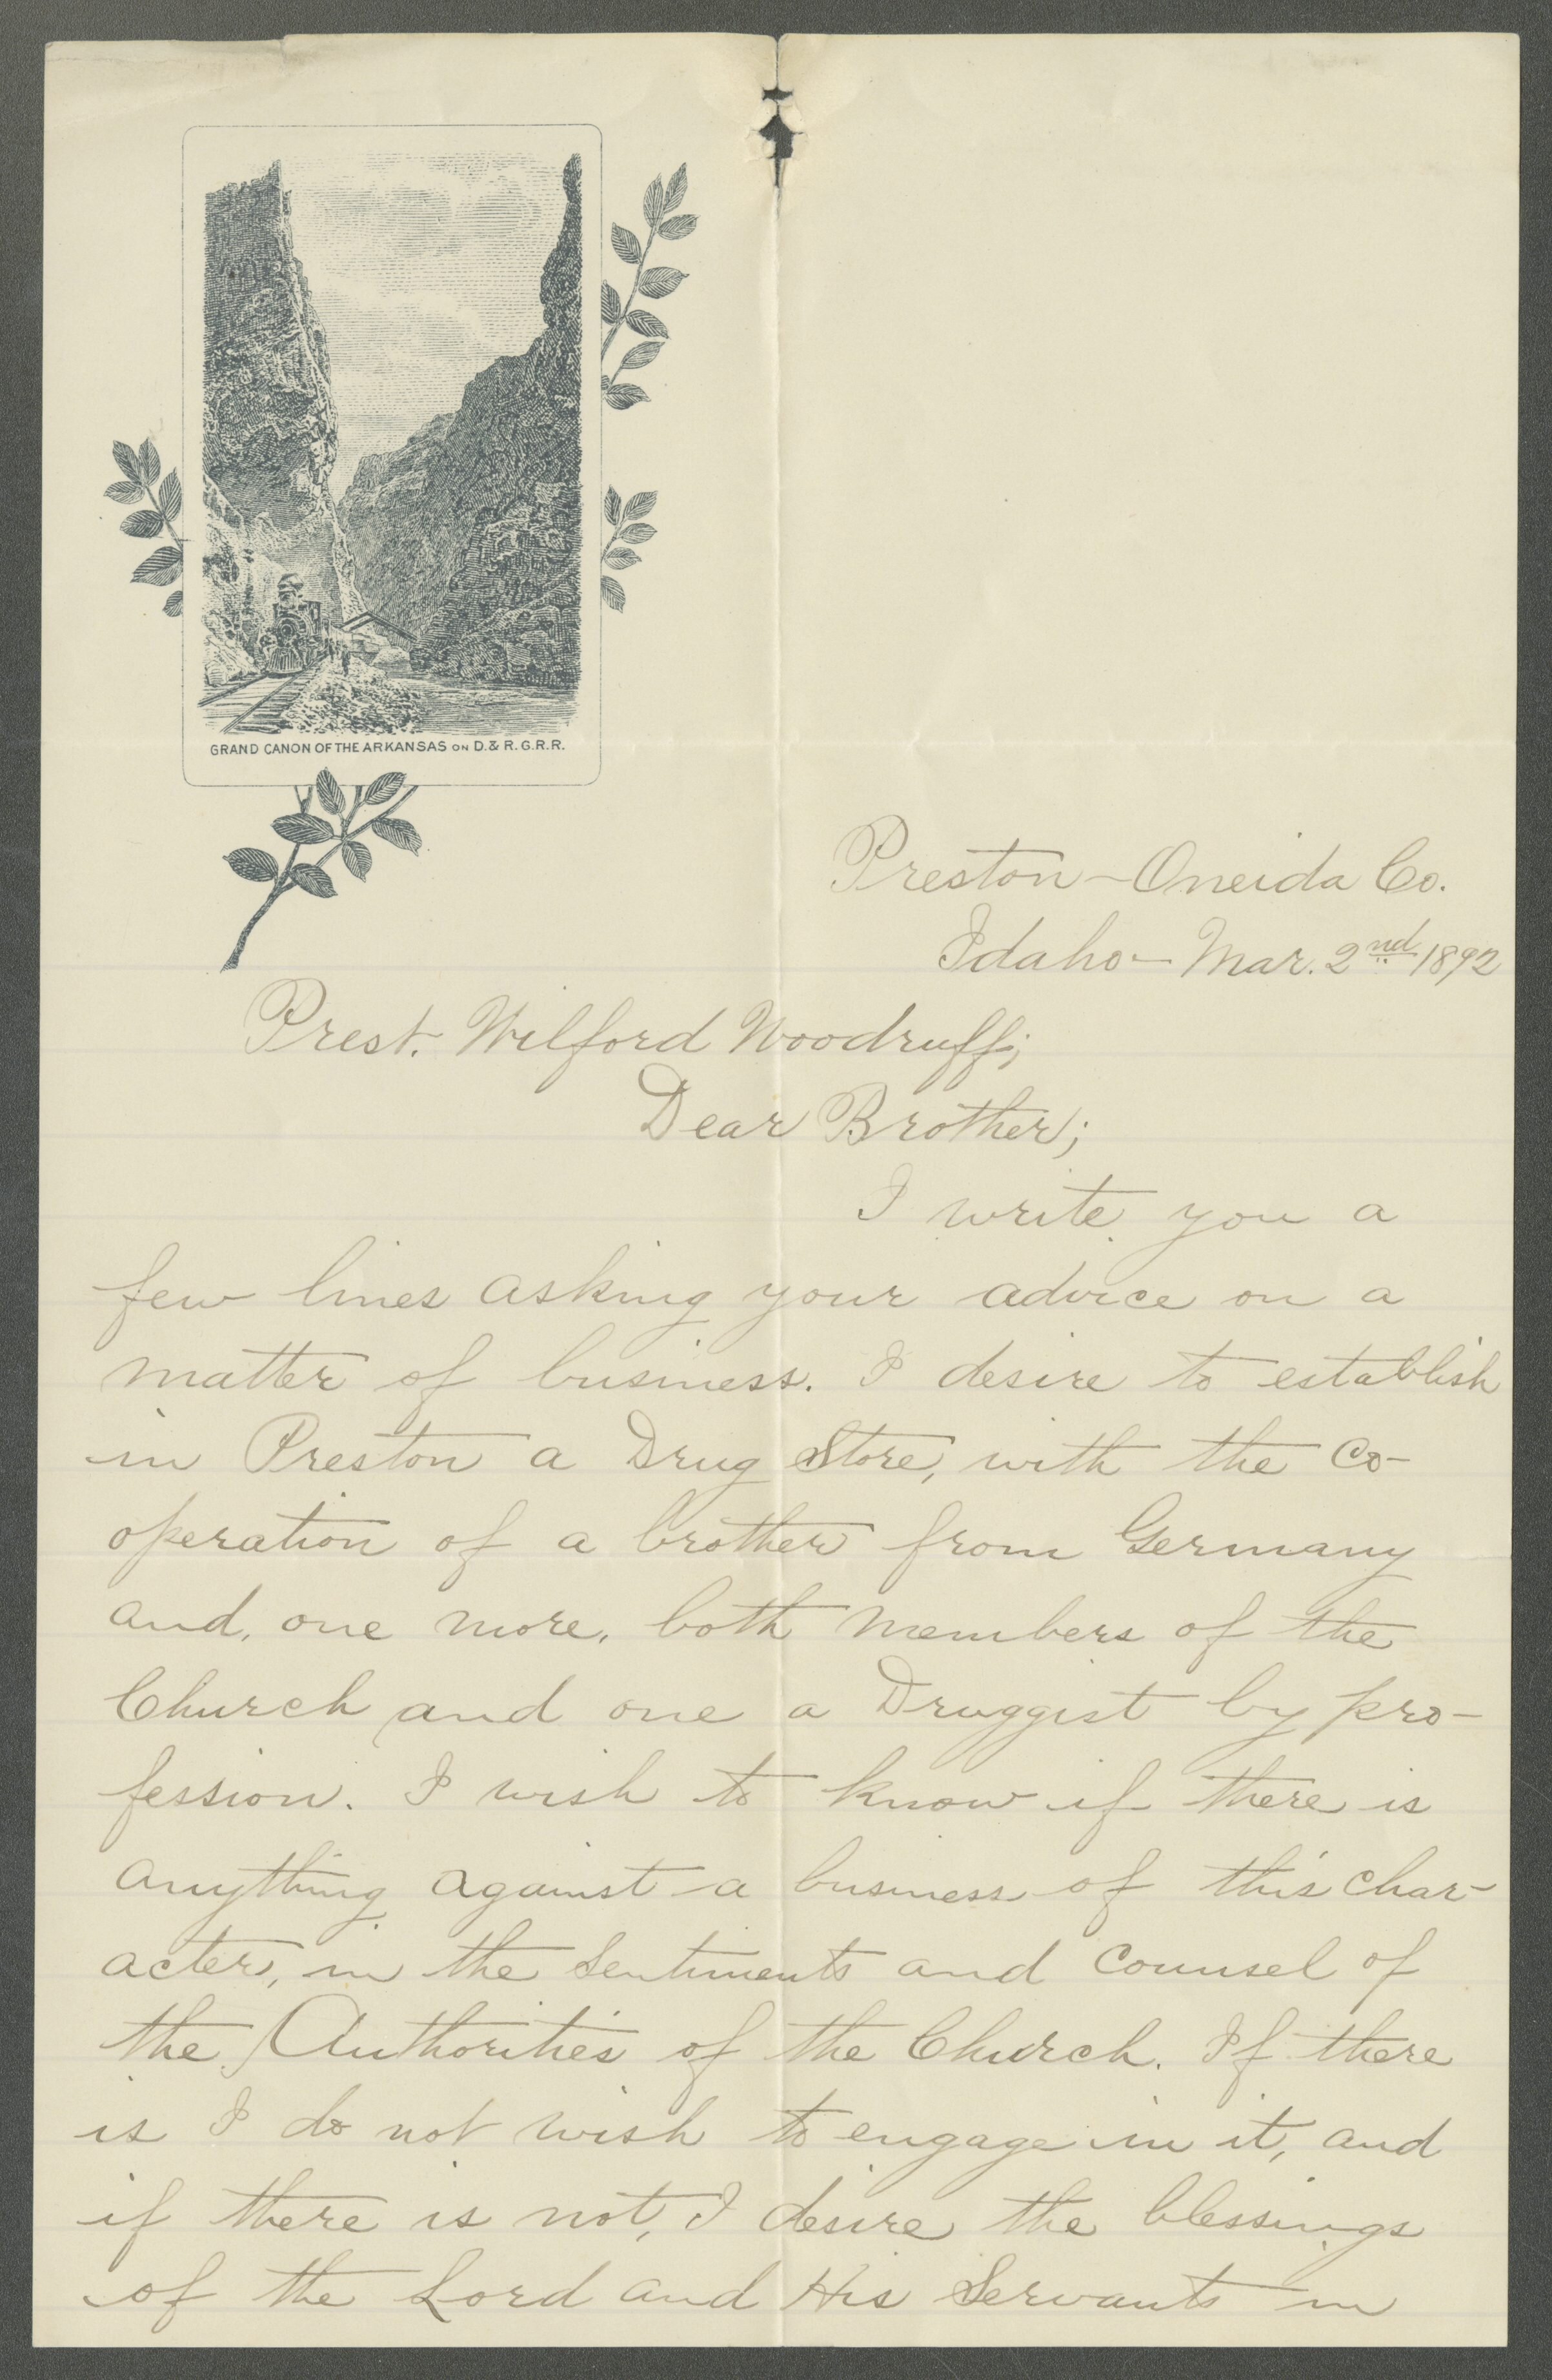 GRAND CANON OF THE ARKANSAS ON D. & R. G. R. R.
Preston - Oneida Co.
Idaho - Mar. 2nd 1892
Prest. Wilford Woodruff;
Dear Brother;
I write you a
few lines asking your advice on a
matter of business. I desire to establish
in Preston a Drug Store, with the Co-
operation of a brother from Germany
and, one more, both members of the
Church and one a Druggist by pro-
fession. I wish to know if there is
anything against a business of this char-
acter, in the Sentiments and Counsel of
the Authorities of the Church. If there
is I do not wish to engage in it, and
if there is not, I desire the blessings
of the Lord and His Servants in